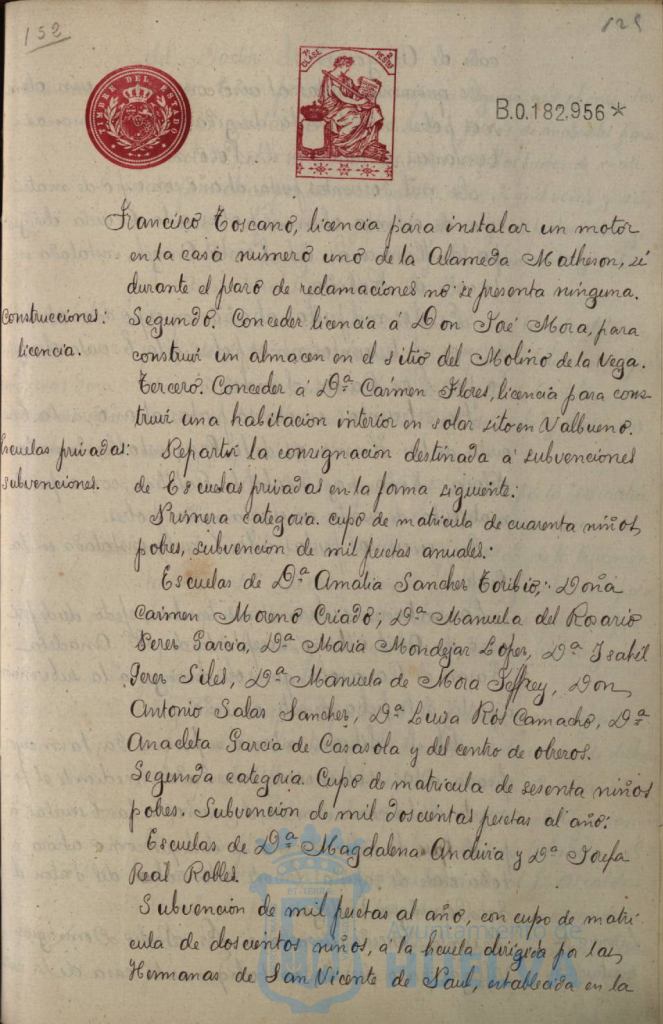 152
125
TIMBRE DEL ESTADO
7ª CLASE
2 PESETAS
B.0.182.956*
Francisco Toscano, licencia para instalar un motor
en la casa número uno de la Alameda Matheson, si
durante el plazo de reclamaciones no se presenta ninguna.
Construcciones:
licencia.
Segundo. Conceder licencia á Don José Mora, para
construir un almacen en el sitio del Molino de la Vega.
Tercero. Conceder á Dª Carmen Flores, licencia para cons-
truir una habitacion interior en solar sito en Valbueno.
Escuelas privadas:
subvenciones.
Repartir la consignacion destinada á subvenciones
de Escuelas privadas en la forma siguiente:
Primera categoria. cupo de matricula de cuarenta niños
pobres, subvencion de mil pesetas anuales:
Escuelas de Dª Amalia Sanchez Toribio; Doña
Carmen Moreno Criado; Dª Manuela del Rosario
Perez Garcia, Dª Maria Mondejar Lopez, Dª Isabel
Perez Siles, Dª Manuela de Mora Jeffrey, Don
Antonio Salas Sanchez, Dª Luisa Ros Camacho, Dª
Anacleta Garcia de Casasola y del centro de obreros.
Segunda categoria. Cupo de matricula de sesenta niños
pobres. Subvencion de mil doscientas pesetas al año:
Escuelas de Dª Magdalena Anduria y Dª Josefa
Real Robles.
Subvencion de mil pesetas al año, con cupo de matri-
cula de doscientos niños, á la Escuela dirigida por las
Hermanas de San Vicente de Paul, establecida en la
Ayuntamiento de
HUELVA